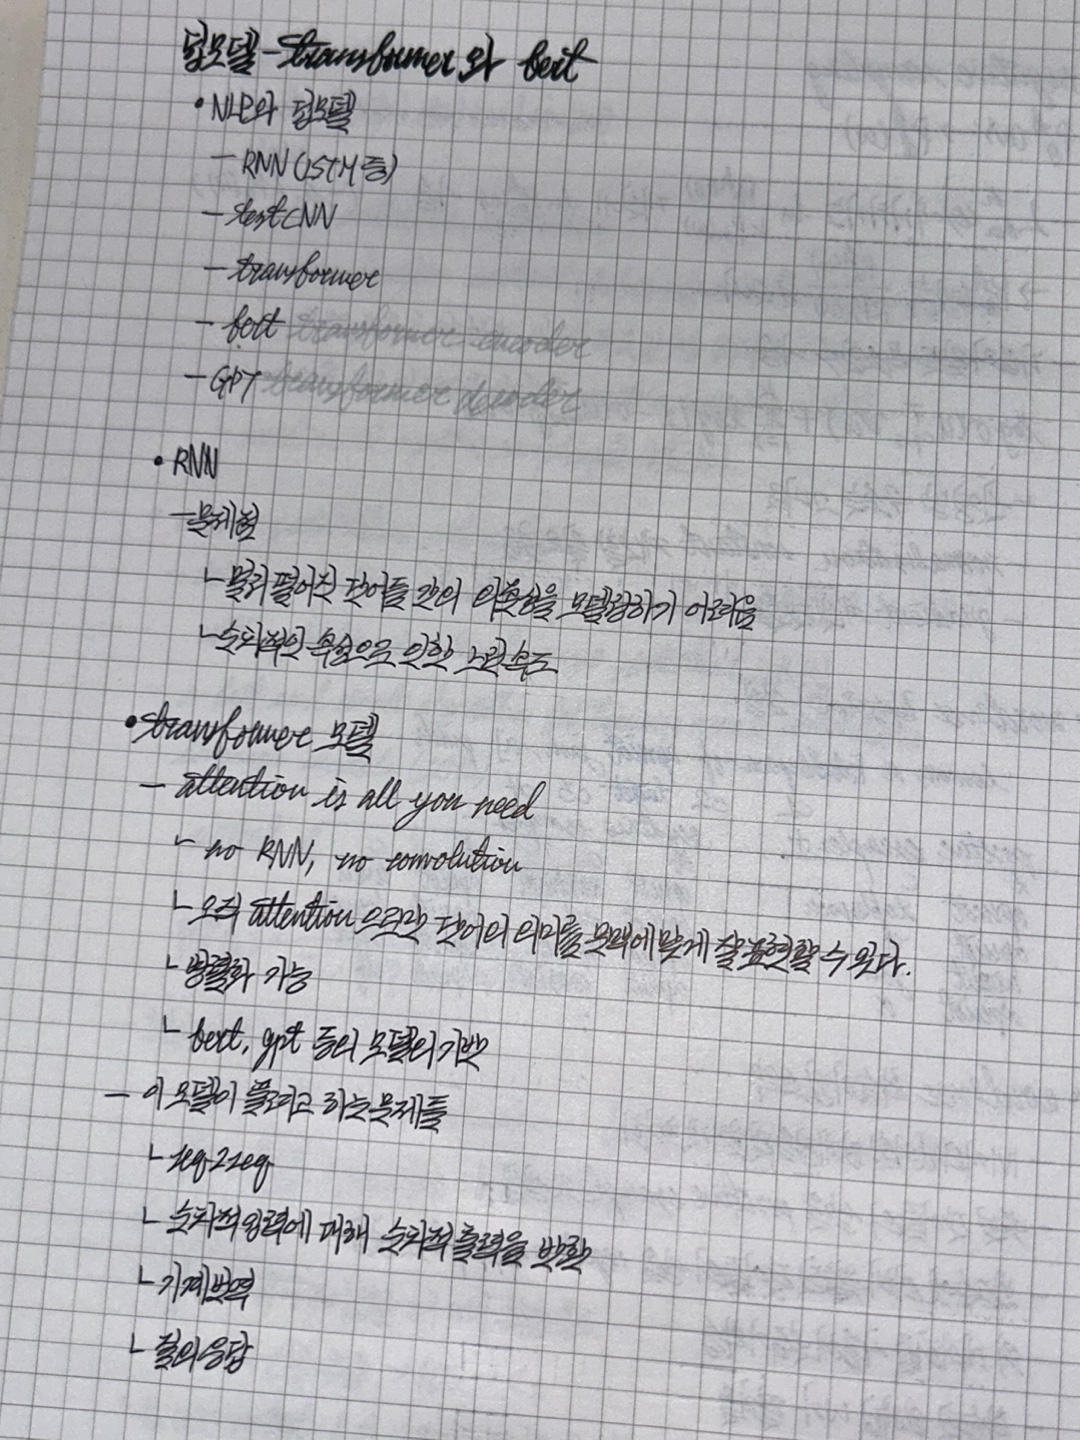 딥모델 - transformer와 bert
• NLP와 딥모델
- RNN (LSTM 등)
- textCNN
- transformer
- bert transformer encoder
- GPT transformer decoder
• RNN
- 문제점
ㄴ 멀리 떨어진 단어들 간의 의존성을 모델링하기 어려움
ㄴ 순차적인 속성으로 인한 느린 속도
• transformer 모델
- attention is all you need
ㄴ no RNN, no convolution
ㄴ 오직 attention 으로만 단어의 의미를 문맥에 맞게 잘 표현할 수 있다.
ㄴ 병렬화 가능
ㄴ bert, gpt 등의 모델의 기반
- 이 모델이 풀려고 하는 문제들
ㄴ seq2seq
ㄴ 순차적 입력에 대해 순차적 출력을 반환
ㄴ 기계번역
ㄴ 질의응답